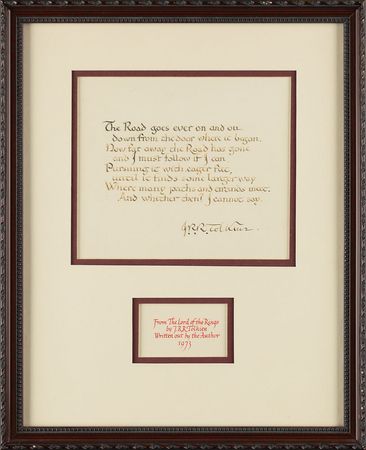 The Road goes ever on and on
down from the door where it began.
Now far away the Road has gone
and I must follow if I can
Pursuing it with eager feet,
until it finds some larger way
Where many paths and errands meet.
And whither then? I cannot say.
J.R.R. Tolkien.
From The Lord of the Rings
by J.R.R. Tolkien
Written out by the Author
1973